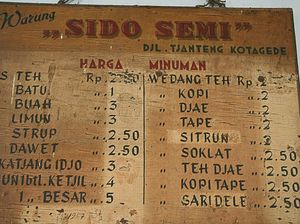 Warung
"SIDO SEMI"
DJL. TJANTENG KOTAGEDE
HARGA MINUMAN
S TEH Rp. 2.50 WEDANG TEH Rp. 2
BATU „ 1 „ KOPI „ 2
BUAH „ 3 „ DJAE „ 2
LIMUN „ 3 „ TAPE „ 2
STRUP „ 2.50 „ SITRUN „ 2
DAWET „ 2.50 „ SOKLAT „ 2.50
KATJANG IDJO „ 3 „ TEH DJAE „ 2.50
KETJIL „ 4 „ KOPI TAPE „ 2.50
1„ BESAR „ 5 „ SARIDELE „ 2.50